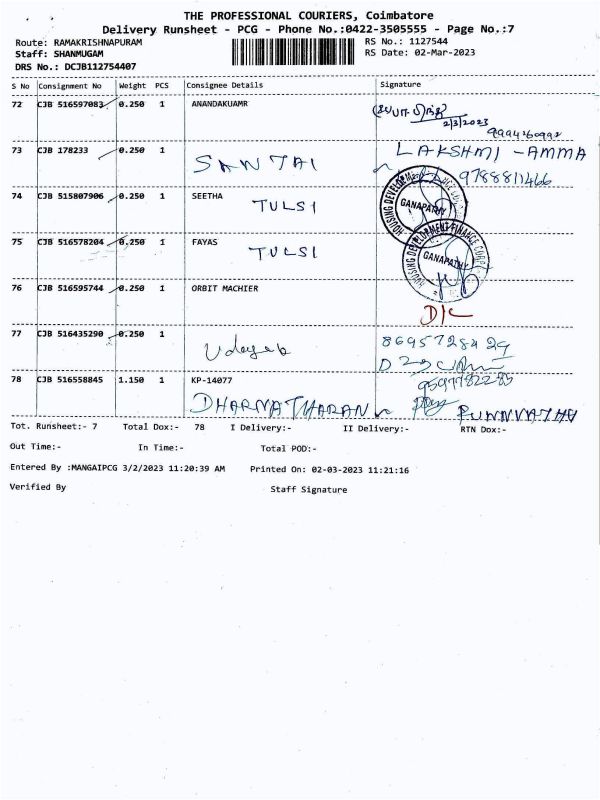 THE PROFESSIONAL COURIERS, Coimbatore
Delivery Runsheet - PCG - Phone No.:0422-3505555 - Page No.:7
Route: RAMAKRISHNAPURAM RS No.: 1127544
Staff: SHANMUGAM RS Date: 02-Mar-2023
DRS No.: DCJB112754407
S No Consignment No Weight PCS Consignee Details Signature
72 CJB 516597083 0.250 1 ANANDAKUAMR
2/3/2023
9994460992
73 CJB 178233 0.250 1 SANJAI LAKSHMI - AMMA
9788811466
74 CJB 515807906 0.250 1 SEETHA
TULSI
GANAPATHY
75 CJB 516578204 0.250 1 FAYAS
TULSI
HOUSING DEVELOPMENT FINANCE CORP
GANAPATHY
76 CJB 516595744 0.250 1 ORBIT MACHIER
D/L
77 CJB 516435290 0.250 1
8695728429
78 CJB 516558845 1.150 1 KP-14077
9597782283
DHARMATHARAN
Tot. Runsheet:- 7 Total Dox:- 78 I Delivery:- II Delivery:- RTN Dox:-
Out Time:- In Time:- Total POD:-
Entered By :MANGAIPCG 3/2/2023 11:20:39 AM Printed On: 02-03-2023 11:21:16
Verified By Staff Signature